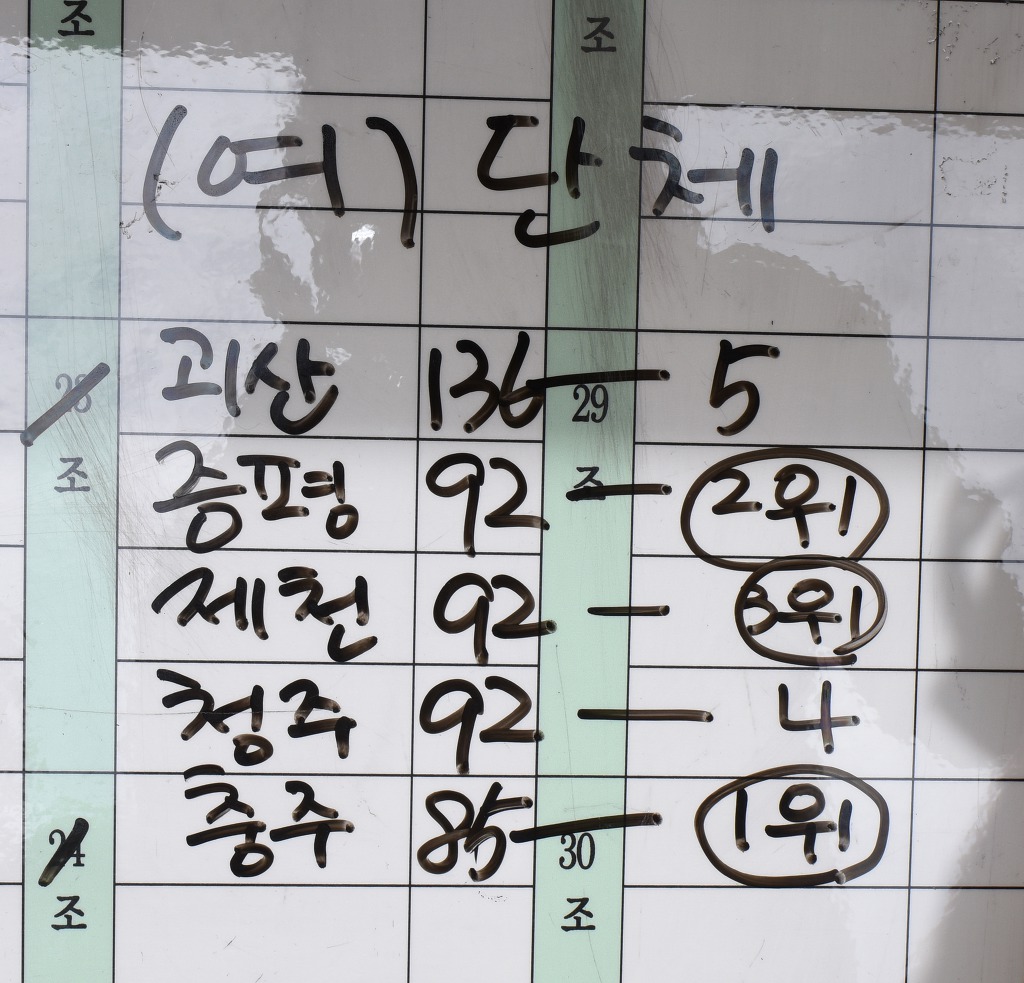 조 조
(여) 단체
28 괴산 136 — 29 5
조 증평 92 — 조 2위
제천 92 — 3위
청주 92 — 4
24 충주 85 — 30 1위
조 조